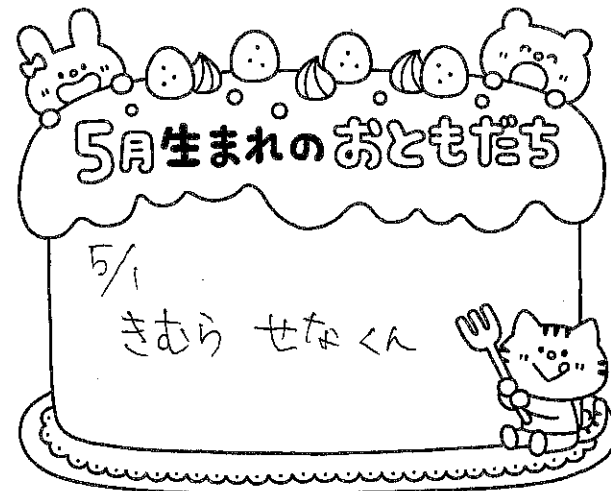 5月生まれのおともだち
5/1
きむら せなくん